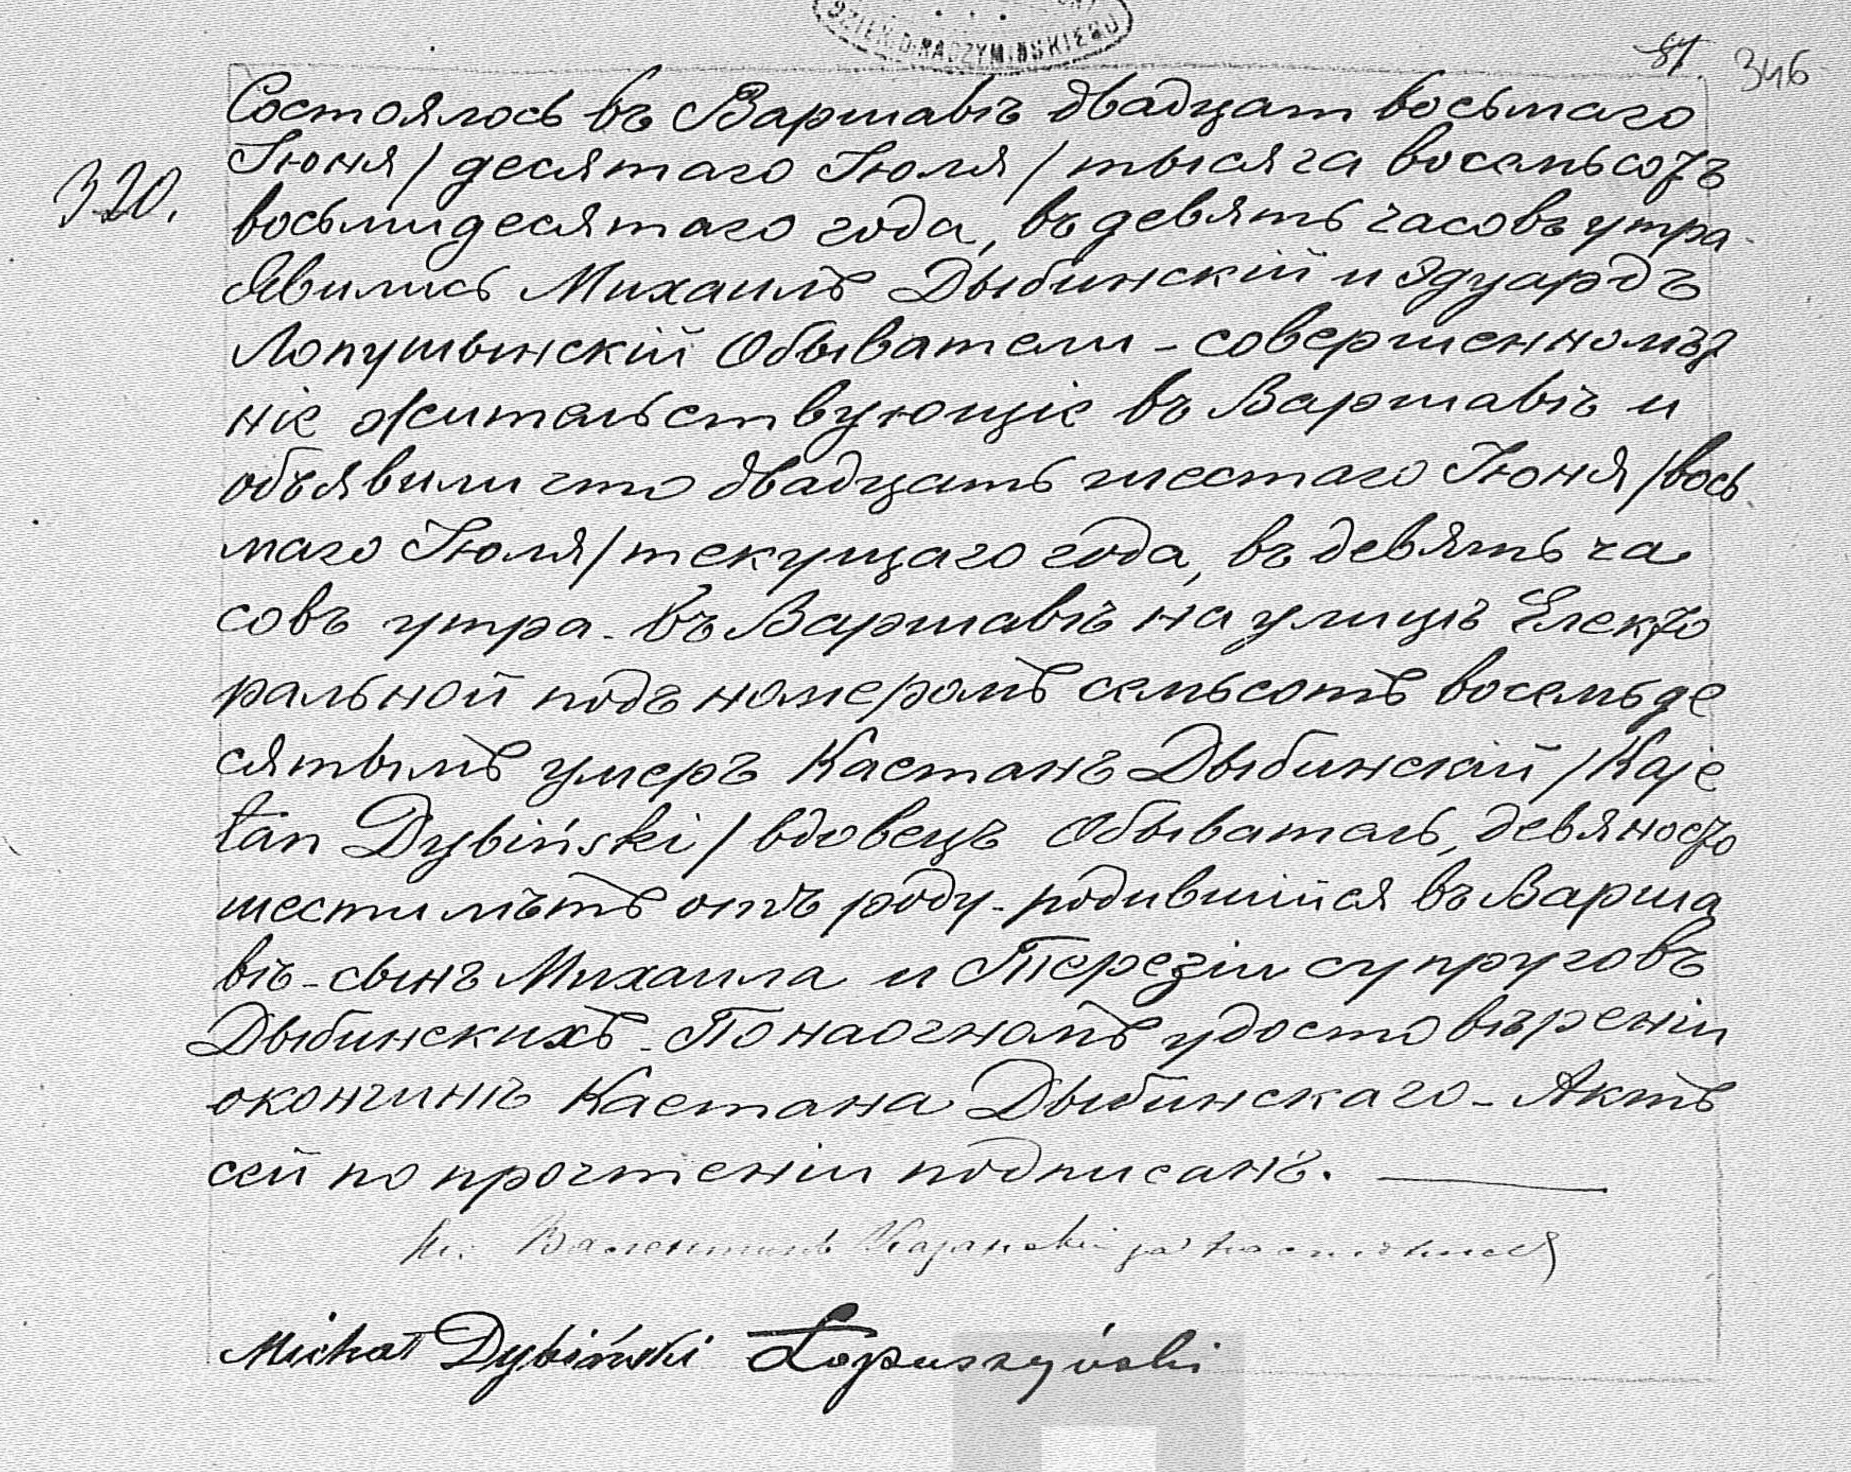 DZIEK.D.RADZYMIŃSKIEGO
81. 346
Состоялось въ Варшавѣ двадцат восьмаго
320. Іюня / десятаго Іюля / тысяча восемьсотъ
восьмидесятаго года, въ девять часовъ утра
Явились Михаилъ Дыбинскій и Эдуардъ
Лопушынскій Обыватели - совершеннолѣт
ніе жительствующіе въ Варшавѣ и
объявили что двадцать шестаго Іюня / вось
маго Іюля / текущаго года, въ девять ча
совъ утра - въ Варшавѣ на улицѣ Електо
ральной подъ номеромъ семьсотъ восемьде
сятымъ умеръ Каетанъ Дыбинскій / Kaje
tan Dybiński / вдовецъ Обыватель, девяносто
шести лѣтъ отъ роду - родившійся въ Варша
вѣ - сынъ Михаила и Терезіи супруговъ
Дыбинскихъ - По наочномъ удостовѣреніи
окончинѣ Каетана Дыбинскаго - Актъ
сей по прочтеніи подписанъ.
Кс. Валентинъ
Michał Dybiński Łopuszyński